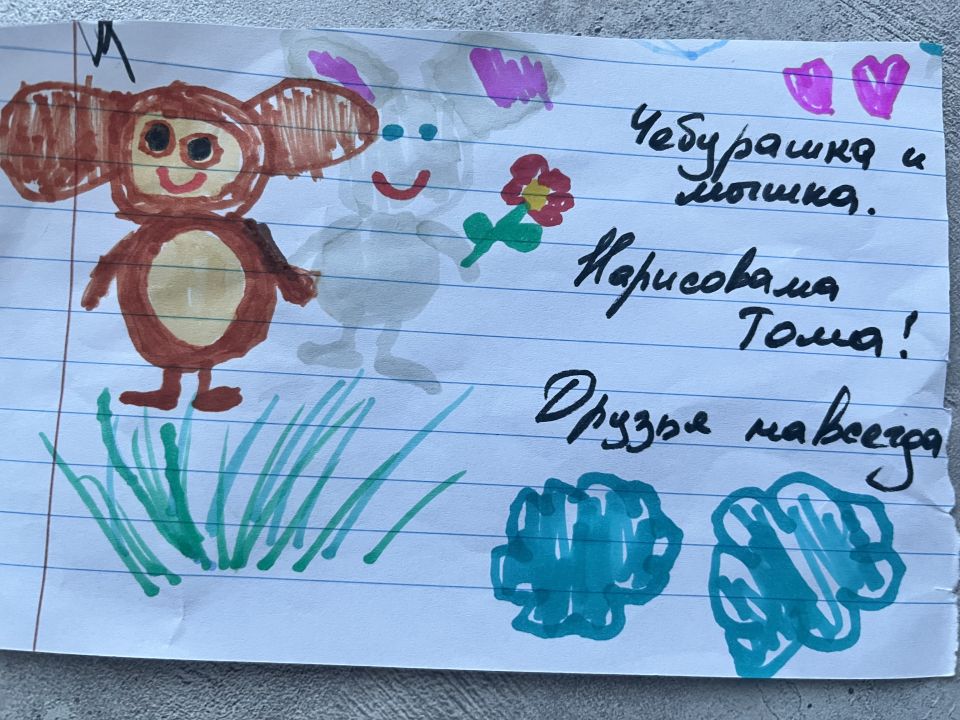 Чебурашка и
мышка.
Нарисовала
Тома!
Друзья навсегда